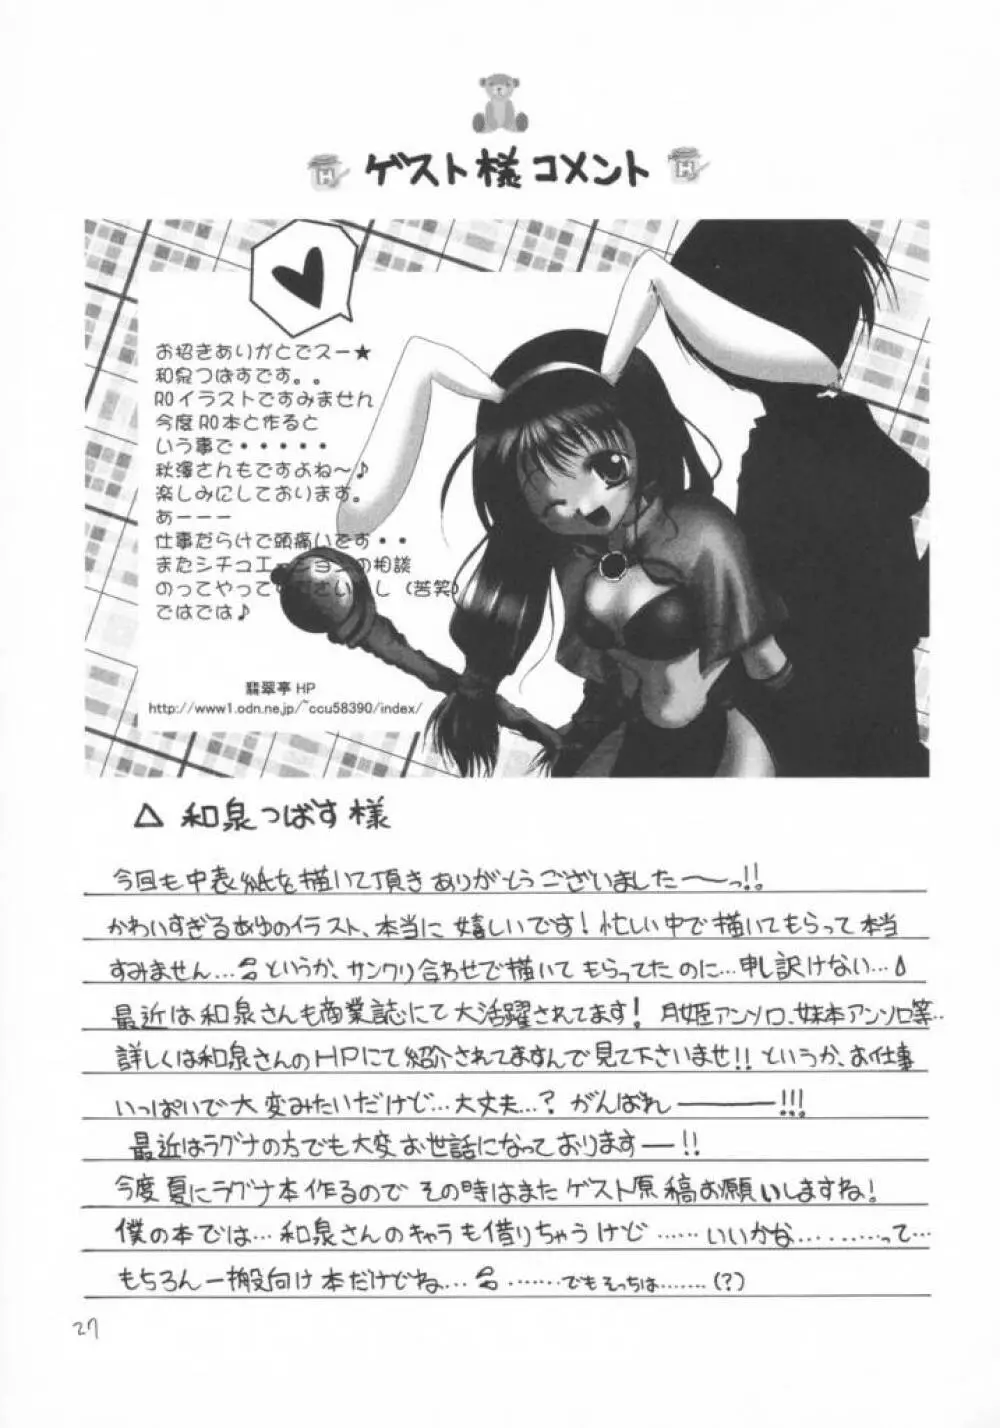 ゲスト様コメント
お招きありがとでスー★
和泉つばすです。。
ROイラストですみません
今度RO本と作ると
いう事で・・・・・
秋澤さんもですよね～♪
楽しみにしております。
あーーー
仕事だらけで頭痛いです・・
またシチュエーションの相談
のってやってください し (苦笑)
ではでは♪
翡翠亭 HP
http://www1.odn.ne.jp/~ccu58390/index/
△ 和泉つばす様
今回も中表紙を描いて頂きありがとうございました――っ!!
かわいすぎるあゆのイラスト、本当に嬉しいです!忙しい中で描いてもらって本当
すみません…というか、サンクリ合わせで描いてもらってたのに…申し訳けない…
最近は和泉さんも商業誌にて大活躍されてます! 月姫アンソロ、妹本アンソロ等…
詳しくは和泉さんのHPにて紹介されてますんで見て下さいませ!! というか、お仕事
いっぱいで大変みたいだけど…大丈夫…? がんばれ――――!!!
最近はラグナの方でも大変お世話になっております―!!
今度夏にラグナ本作るのでその時はまたゲスト原稿お願いしますね!
僕の本では…和泉さんのキャラも借りちゃうけど……いいかな………って…
もちろん一般向け本だけどね… ……でもそっちは……(?)
27